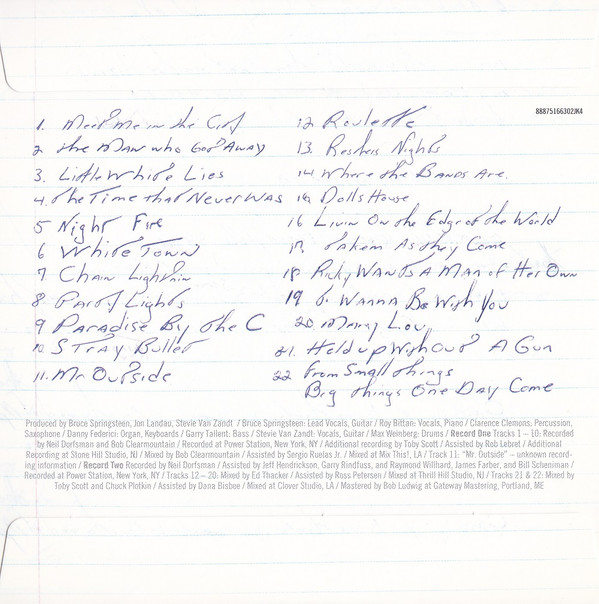 88875166302JK4
1. Meet Me in the City
2 The Man who Got Away
3. Little White Lies
4. The Time that Never Was
5 Night Fire
6 White Town
7 Chain Lightnin
8 Party Lights
9 Paradise By the C
10 Stray Bullet
11. Mr Outside
12 Roulette
13. Restless Nights
14 Where the Bands Are.
15 Dolls House
16 Livin On the Edge of the World
17. Takem As they Come
18 Ricky Wants A Man of Her Own
19 I Wanna Be With You
20 Mary Lou
21. Held up Without A Gun
22 From Small things
Big things One Day Come
Produced by Bruce Springsteen, Jon Landau, Stevie Van Zandt / Bruce Springsteen: Lead Vocals, Guitar / Roy Bittan: Vocals, Piano / Clarence Clemons: Percussion,
Saxophone / Danny Federici: Organ, Keyboards / Garry Tallent: Bass / Stevie Van Zandt: Vocals, Guitar / Max Weinberg: Drums / Record One Tracks 1 – 10: Recorded
by Neil Dorfsman and Bob Clearmountain / Recorded at Power Station, New York, NY / Additional recording by Toby Scott / Assisted by Rob Lebret / Additional
Recording at Stone Hill Studio, NJ / Mixed by Bob Clearmountain / Assisted by Sergio Ruelas Jr. / Mixed at Mix This!, LA / Track 11: “Mr. Outside” – unknown record-
ing information / Record Two Recorded by Neil Dorfsman / Assisted by Jeff Hendrickson, Garry Rindfuss, and Raymond Willhard, James Farber, and Bill Scheniman /
Recorded at Power Station, New York, NY / Tracks 12 – 20: Mixed by Ed Thacker / Assisted by Ross Petersen / Mixed at Thrill Hill Studio, NJ / Tracks 21 & 22: Mixed by
Toby Scott and Chuck Plotkin / Assisted by Dana Bisbee / Mixed at Clover Studio, LA / Mastered by Bob Ludwig at Gateway Mastering, Portland, ME